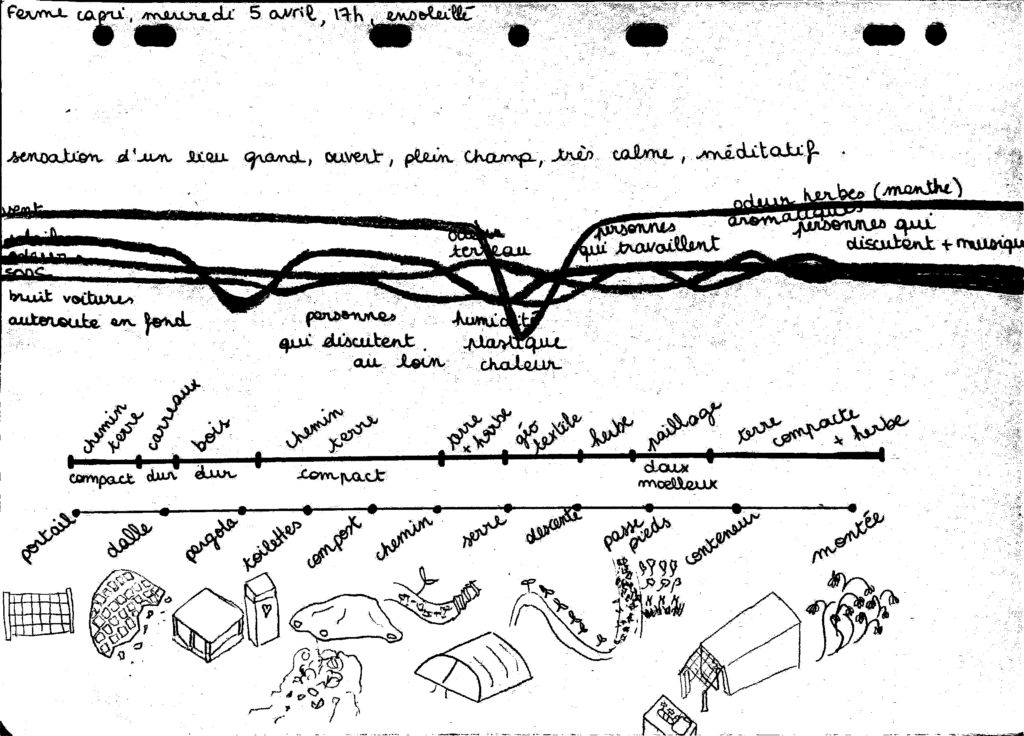 Ferme capri, mercredi 5 avril, 17h, ensoleillé
sensation d'un lieu grand, ouvert, plein champ, très calme, méditatif.
vent
soleil
odeurs
sons
bruit voitures
autoroute en fond
personnes
qui discutent
au loin
odeur
terreau
humidité
plastique
chaleur
personnes
qui travaillent
odeur herbes (menthe)
aromatiques
personnes qui
discutent + musique
chemin
terre
carreaux
bois
chemin
terre
terre
+ herbe
géo
textile
herbe
paillage
terre compacte
+ herbe
compact
dur
dur
compact
doux
moelleux
portail
dalle
pergola
toilettes
compost
chemin
serre
descente
passe
pieds
conteneur
montée